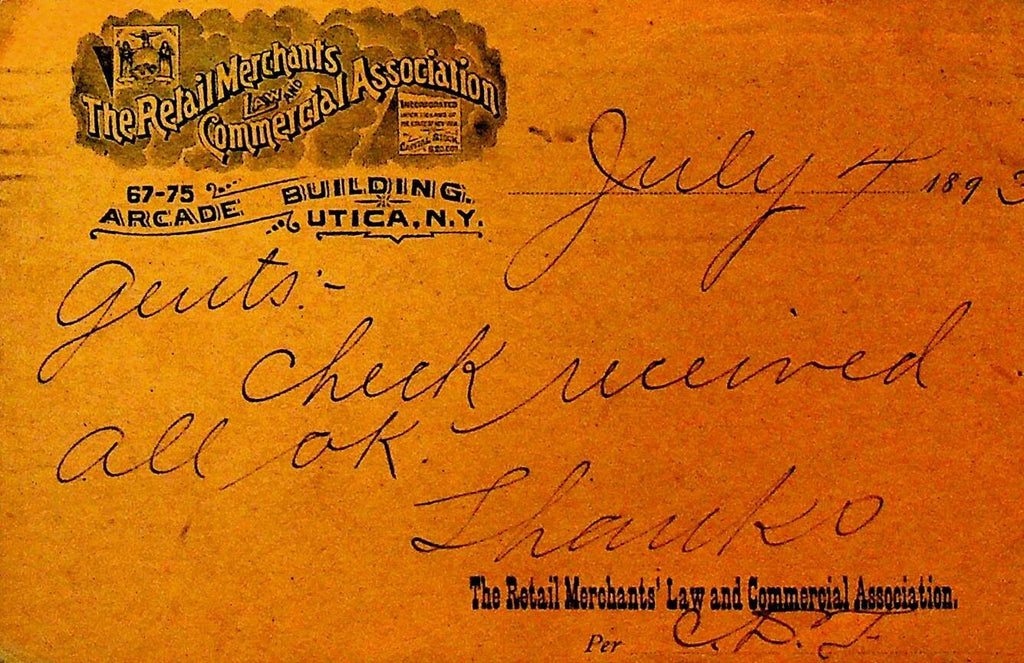 The Retail Merchants
Law and
Commercial Association
Incorporated
under the laws of
the State of New York
Capital Stock
67-75
Arcade Building,
Utica, N.Y.
July 4 1893
Gents:-
Check received
all ok.
Thanks
The Retail Merchants' Law and Commercial Association.
Per